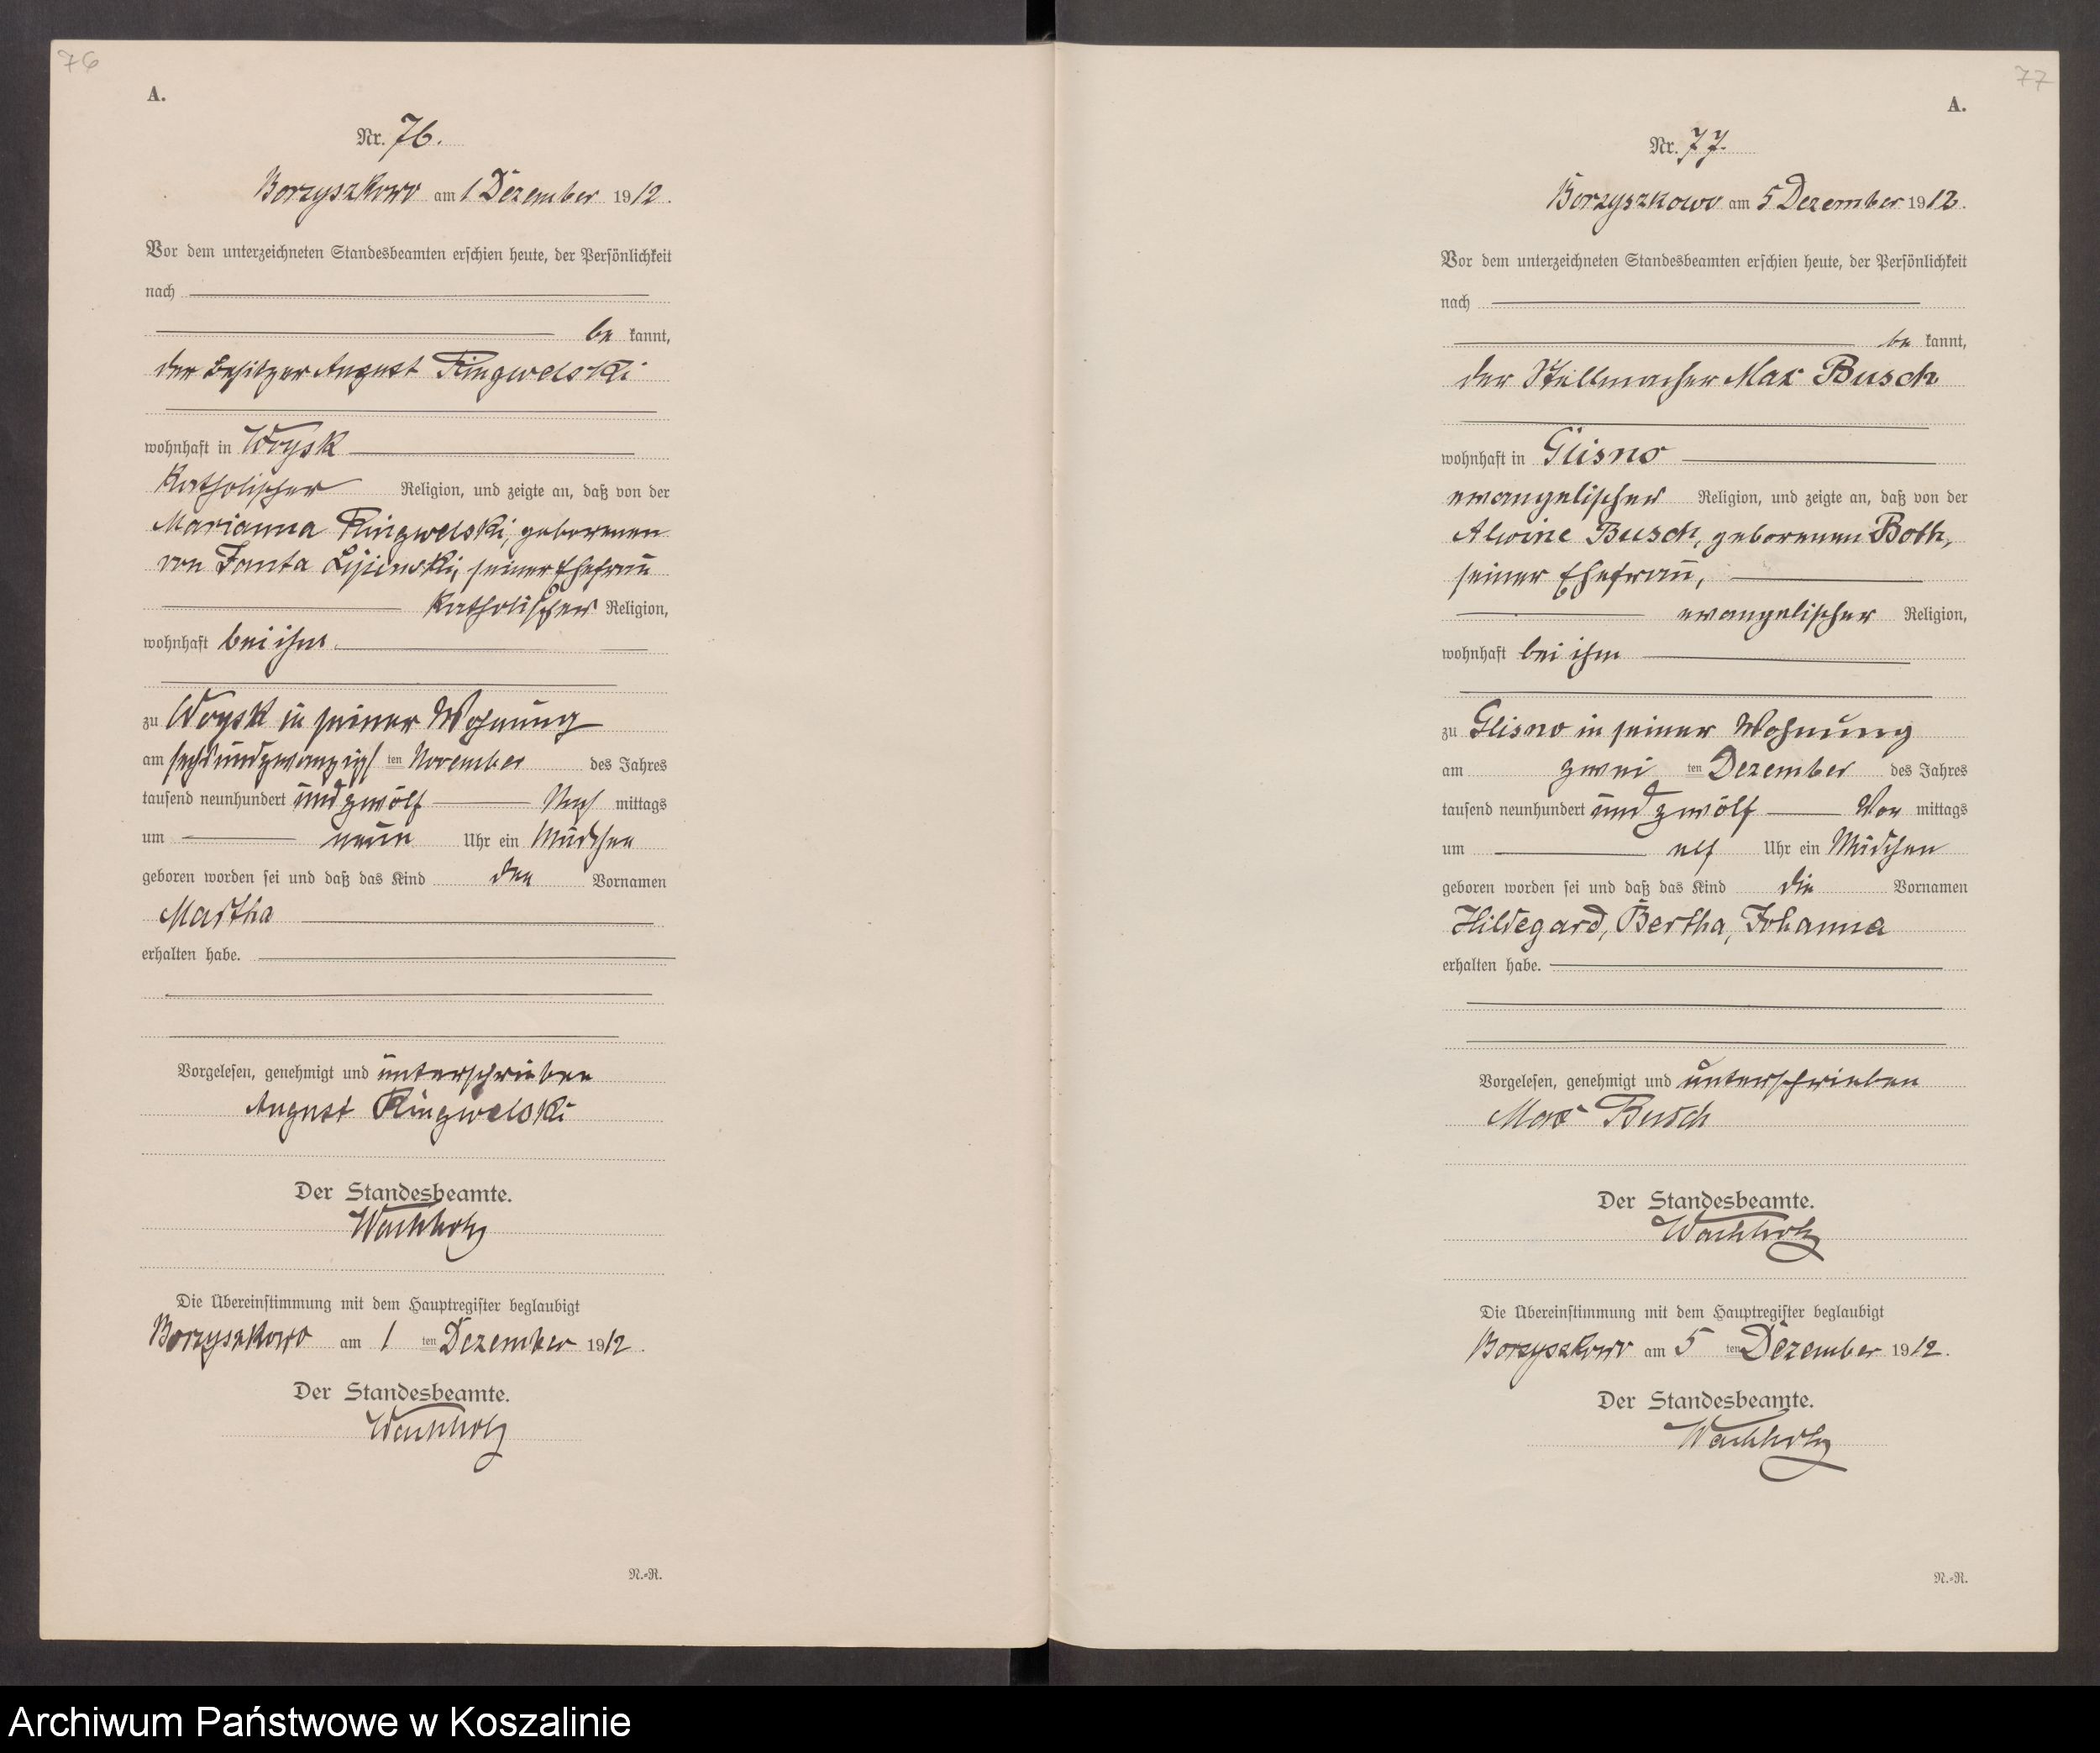 76
A.
Nr. 76.
Borzyszkowo am 1 Dezember 1912.
Vor dem unterzeichneten Standesbeamten erschien heute, der Persönlichkeit
nach
be kannt,
der Besitzer August Ringwelski
wohnhaft in Woysk
katholischer Religion, und zeigte an, daß von der
Marianna Ringwelski, geborenen
von Janta Lipinski, seiner Ehefrau
katholischer Religion,
wohnhaft bei ihm
zu Woysk in seiner Wohnung
am sechsundzwanzigsten November des Jahres
tausend neunhundert und zwölf Nach mittags
um neun Uhr ein Mädchen
geboren worden sei und daß das Kind den Vornamen
Martha
erhalten habe.
Vorgelesen, genehmigt und unterschrieben
August Ringwelski
Der Standesbeamte.
Wachholz
Die Übereinstimmung mit dem Hauptregister beglaubigt
Borzyszkowo am 1 ten Dezember 1912.
Der Standesbeamte.
Wachholz
N.-R.
77
A.
Nr. 77.
Borzyszkowo am 5 Dezember 1912.
Vor dem unterzeichneten Standesbeamten erschien heute, der Persönlichkeit
nach
be kannt,
der Stellmacher Max Busch
wohnhaft in Glisno
evangelischer Religion, und zeigte an, daß von der
Alwine Busch, geborenen Both,
seiner Ehefrau,
evangelischer Religion,
wohnhaft bei ihm
zu Glisno in seiner Wohnung
am zwei ten Dezember des Jahres
tausend neunhundert und zwölf Vor mittags
um elf Uhr ein Mädchen
geboren worden sei und daß das Kind die Vornamen
Hildegard, Bertha, Johanna
erhalten habe.
Vorgelesen, genehmigt und unterschrieben
Max Busch
Der Standesbeamte.
Wachholz
Die Übereinstimmung mit dem Hauptregister beglaubigt
Borzyszkowo am 5 ten Dezember 1912.
Der Standesbeamte.
Wachholz
N.-R.
Archiwum Państwowe w Koszalinie